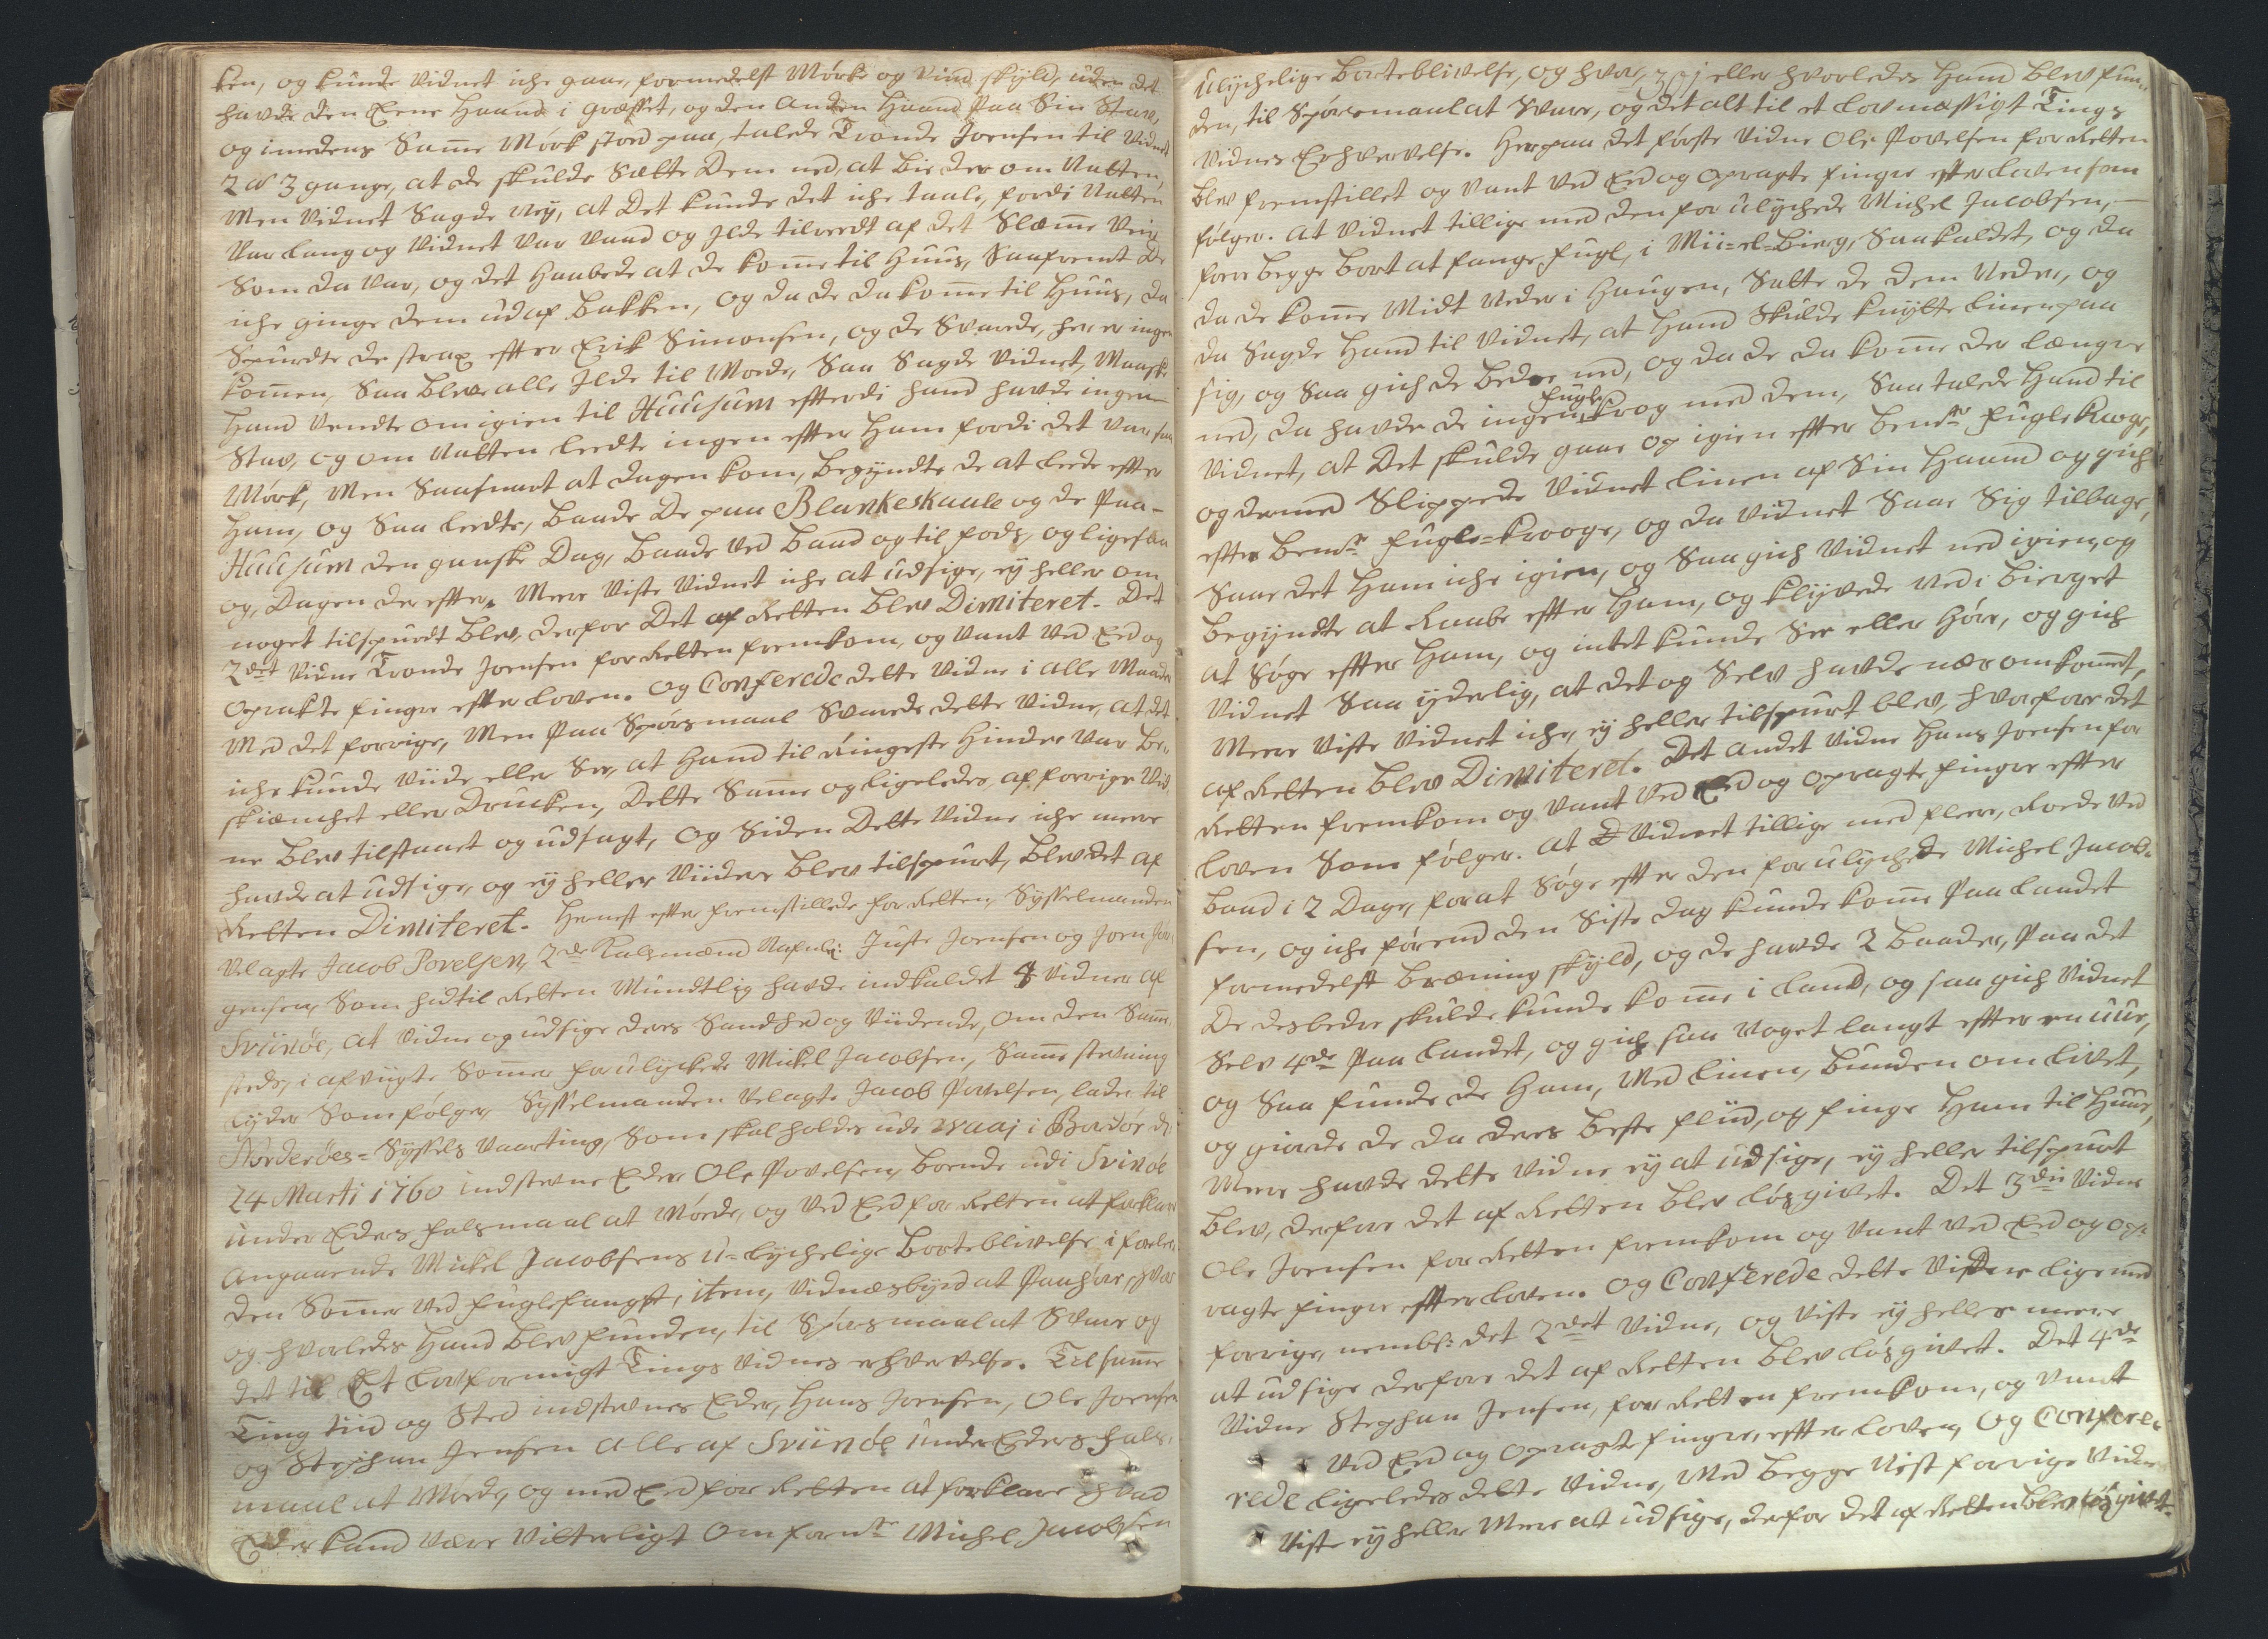 ken, og kunde Vidnet iche gaae, formedelst Mørke og Vind skyld, uden det
havde den Eene Haand i græsset, og den anden Haand Paa Sin Stav,
og imedens Samme Mørk stod paa, talede Tronde Joensen til Vidnet
2 a 3 gange, at de skulde Sætte Dem ned, at bie der om Natten,
Men Vidnet Sagde Ney, at Det kunde det iche taale, fordi Natten
Var lang og Vidnet Var Vaad og Ilde tilreedt af det Slæmme Veir
Som da Var, og det Haabede at de komme til Huus, Saafremt De
iche ginge dem ud af Bakken, og da de da komme til Huus, da
Spurdte de strax effter Erik Simonsen, og de Svarede, her er ingen
kommen, Saa bleve alle Ilde til Mode, Saa Sagde Vidnet, Maaske
Hand Vendte om igien til Huusum effterdi hand havde ingen
Stav, og om Natten leedte ingen effter Ham fordi det Var saa
Mørk, Men Saasnart at dagen kom, begyndte de at leede effter
Ham, og Saa leedte, baade De paa Blankeskaale og de Paa
Huusum den ganske Dag, baade Ved Baad og til fods, og ligesaa
og, Dagen der effter. Meere Viste Vidnet iche at udsige, ey heller om
noget tilspurdt blev, derfor Det af Retten blev Dimiteret. Det
2det Vidne Tronde Joensen for Retten fremkom, og Vant Ved Eed og
oprakte fingre effter loven. Og Conferede dette Vidne i alle Maader
Med det forrige, Men Paa Spørsmaal Svarede dette Vidne, at det
iche kunde Viide eller See, at Hand til Ringeste Hinder Var be-
skiænchet eller Drucken, Dette Samme og ligeledes af forrige Vid-
ne blev tilstaaet og udsagt, og Siden Dette Vidne iche meere
havde at udsige, og ey heller Viidere blev tilspurt, blev det af
Retten Dimiteret. Hernest effter fremstillede for Retten Sysselmanden
Velagte Jacob Povelsen, 2de Kalsmænd Nafnlig: Juste Joensen og Joen Jør-
gensen, Som hid til Retten Mundtlig havde indkaldet 4 Vidner af
Sviinøe, at Vidne og udsige deres Sandhed og Viidende, om den Samme-
steds, i afvigte Sommer forulyckede Mickel Jacobsen, Samme stevning
lyder Som følger Sysselmanden Velagte Jacob Povelsen, lader til
Norderøes-Syssels Vaarting, Som skal holdes ude waaj i Bordøe d:
24 Marti 1760 indstevne Eder Ole Povelsen, boende udi Svinøe
under Eders falsmaal at Møde, og Ved Eed for Retten at forklare
Angaaende Mickel Jacobsens u-lychelige Bortblivelse i forle-
den Sommer Ved fuglefangst, item, Vidnesbyrd at Paahøre, hvor
og hvorledes Hand blev funden, til Spørsmaal at Svare og
det til Et lovformigt Tings Vidnes erhvervelse. Til samme
Ting tiid og Sted indstevnes Eder, Hans Joensen, Ole Joensen
og Stephan Jensen alle af Sviinøe under Eders fals-
maal at Møde, og med Eed for Retten at forklare hvad
Eder kand være Vitterligt om fornte Michel Jacobsen
Ulychelige Bortblivelse, og hvor, eller hvorledes Hand blev fun-
den, til Spørsmaal at Svare, og det alt til et lovmæssigt Tings
Vidnes Erhvervelse. Herpaa det første Vidne Ole Povelsen for Retten
blev fremstillet og Vant Ved Eed og opragte fingre effter loven som
følger. At Vidnet tillige med den forulychede Michel Jacobsen,
foere begge bort at fange fugl, i Mii-el-Bierg, Saakaldet, og da
da de komme Midt Neder i Haugen, Satte de dem Neder, og
da Sagde Hand til Vidnet, at Hand Skulde knytte linen paa
sig, og Saa gich de bedre ned, og da de da komme der længre
ned, da havde de ingen fugle Krog med dem, Saa talede Hand til
Vidnet, at Det skulde gaae op igien effter bemte fugle Kroge,
og dermed Slippede Vidnet linen af Sin Haand og gich
effter bemte fugle-Krooge, og da Vidnet Saae Sig tilbage,
Saae det Ham iche igien, og Saa gich Vidnet ned igien, og
begyndte at Raabe effter Ham, og klyvede Ned i bierget
at Søge effter Ham, og intet kunde See eller Høre, og gich
Vidnet Saa yderlig, at det og Selv havde nær omkommet,
Meere Viste Vidnet iche, ey heller tilspurt blev, hvorfore det
af Retten blev Dimiteret. Det andet Vidne Hans Joensen for
Retten fremkom og Vant Ved Eed og opragte fingre effter
loven Som følger. At Vidnet tillige med fleere, Roede Ved
Baad i 2 Dage, for at Søge effter den forulychede Michel Jacob-
sen, og iche førend den Siste dag kunde komme Paa landet
formedelst Bræning skyld, og de havde 2 baader, Paa det
De desbedre skulde kunde komme i land, og saa gich Vidnet
Selv 4de Paa landet, og gich saa Noget langt effter en uur,
og Saa funde de Ham, Med linen, bunden om livet,
og giorde de da deres beste fliid, og finge Ham til Huus,
Meere havde dette Vidne ey at udsige, ey heller tilspurt
blev, derfore det af Retten blev løsgivet. Det 3die Vidne
Ole Joensen for Retten fremkom og Vant Ved Eed og op-
ragte fingre effter loven. Og Conferede dette Vidne lige med
forrige, nembl: det 2det Vidne, og Viste ey heller meere
at udsige derfore det af Retten blev løsgivet. Det 4de
Vidne Stephan Jensen, for Retten fremkom, og Vant
Ved Eed og opragte fingre, effter loven, og Confere-
rede ligeledes dette Vidne, Med begge Nest forrige Vidne
Viste ey heller Mere at udsige, derfor det af Retten blev løsgivet.